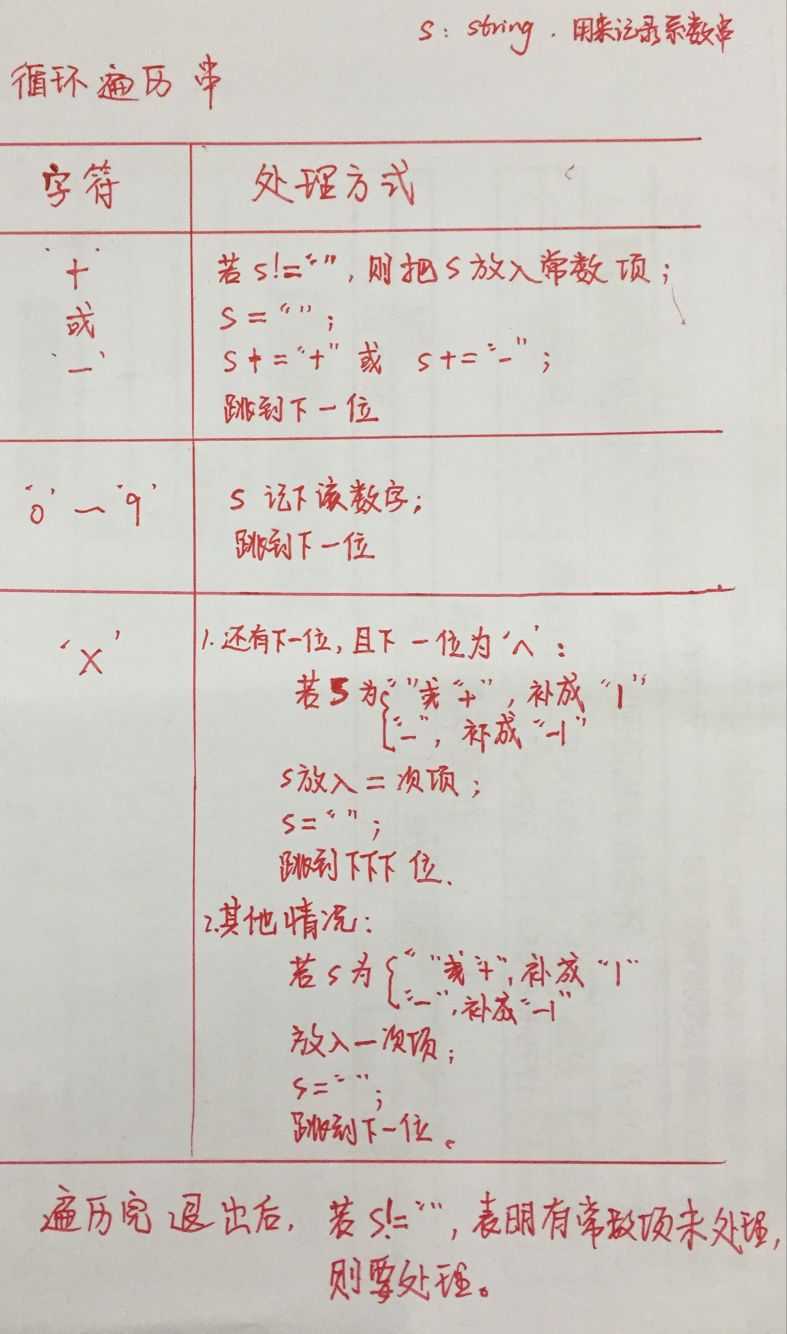 s: string. 用来记录系数串
循环遍历串
字符 处理方式
'+'
或
'-'
若s!="",则把s放入常数项;
s="";
s+="+"或 s+="-";
跳到下一位
'0'—'9'
s记下该数字;
跳到下一位
'X'
1.还有下一位,且下一位为'^':
若s为{""或"+",补成"1"
"-",补成"-1"
s放入二次项;
s="";
跳到下下下位.
2.其他情况:
若s为{""或"+",补成"1"
"-",补成"-1"
放入一次项;
s="";
跳到下一位。
遍历完退出后,若s!="",表明有常数项未处理,
则要处理。